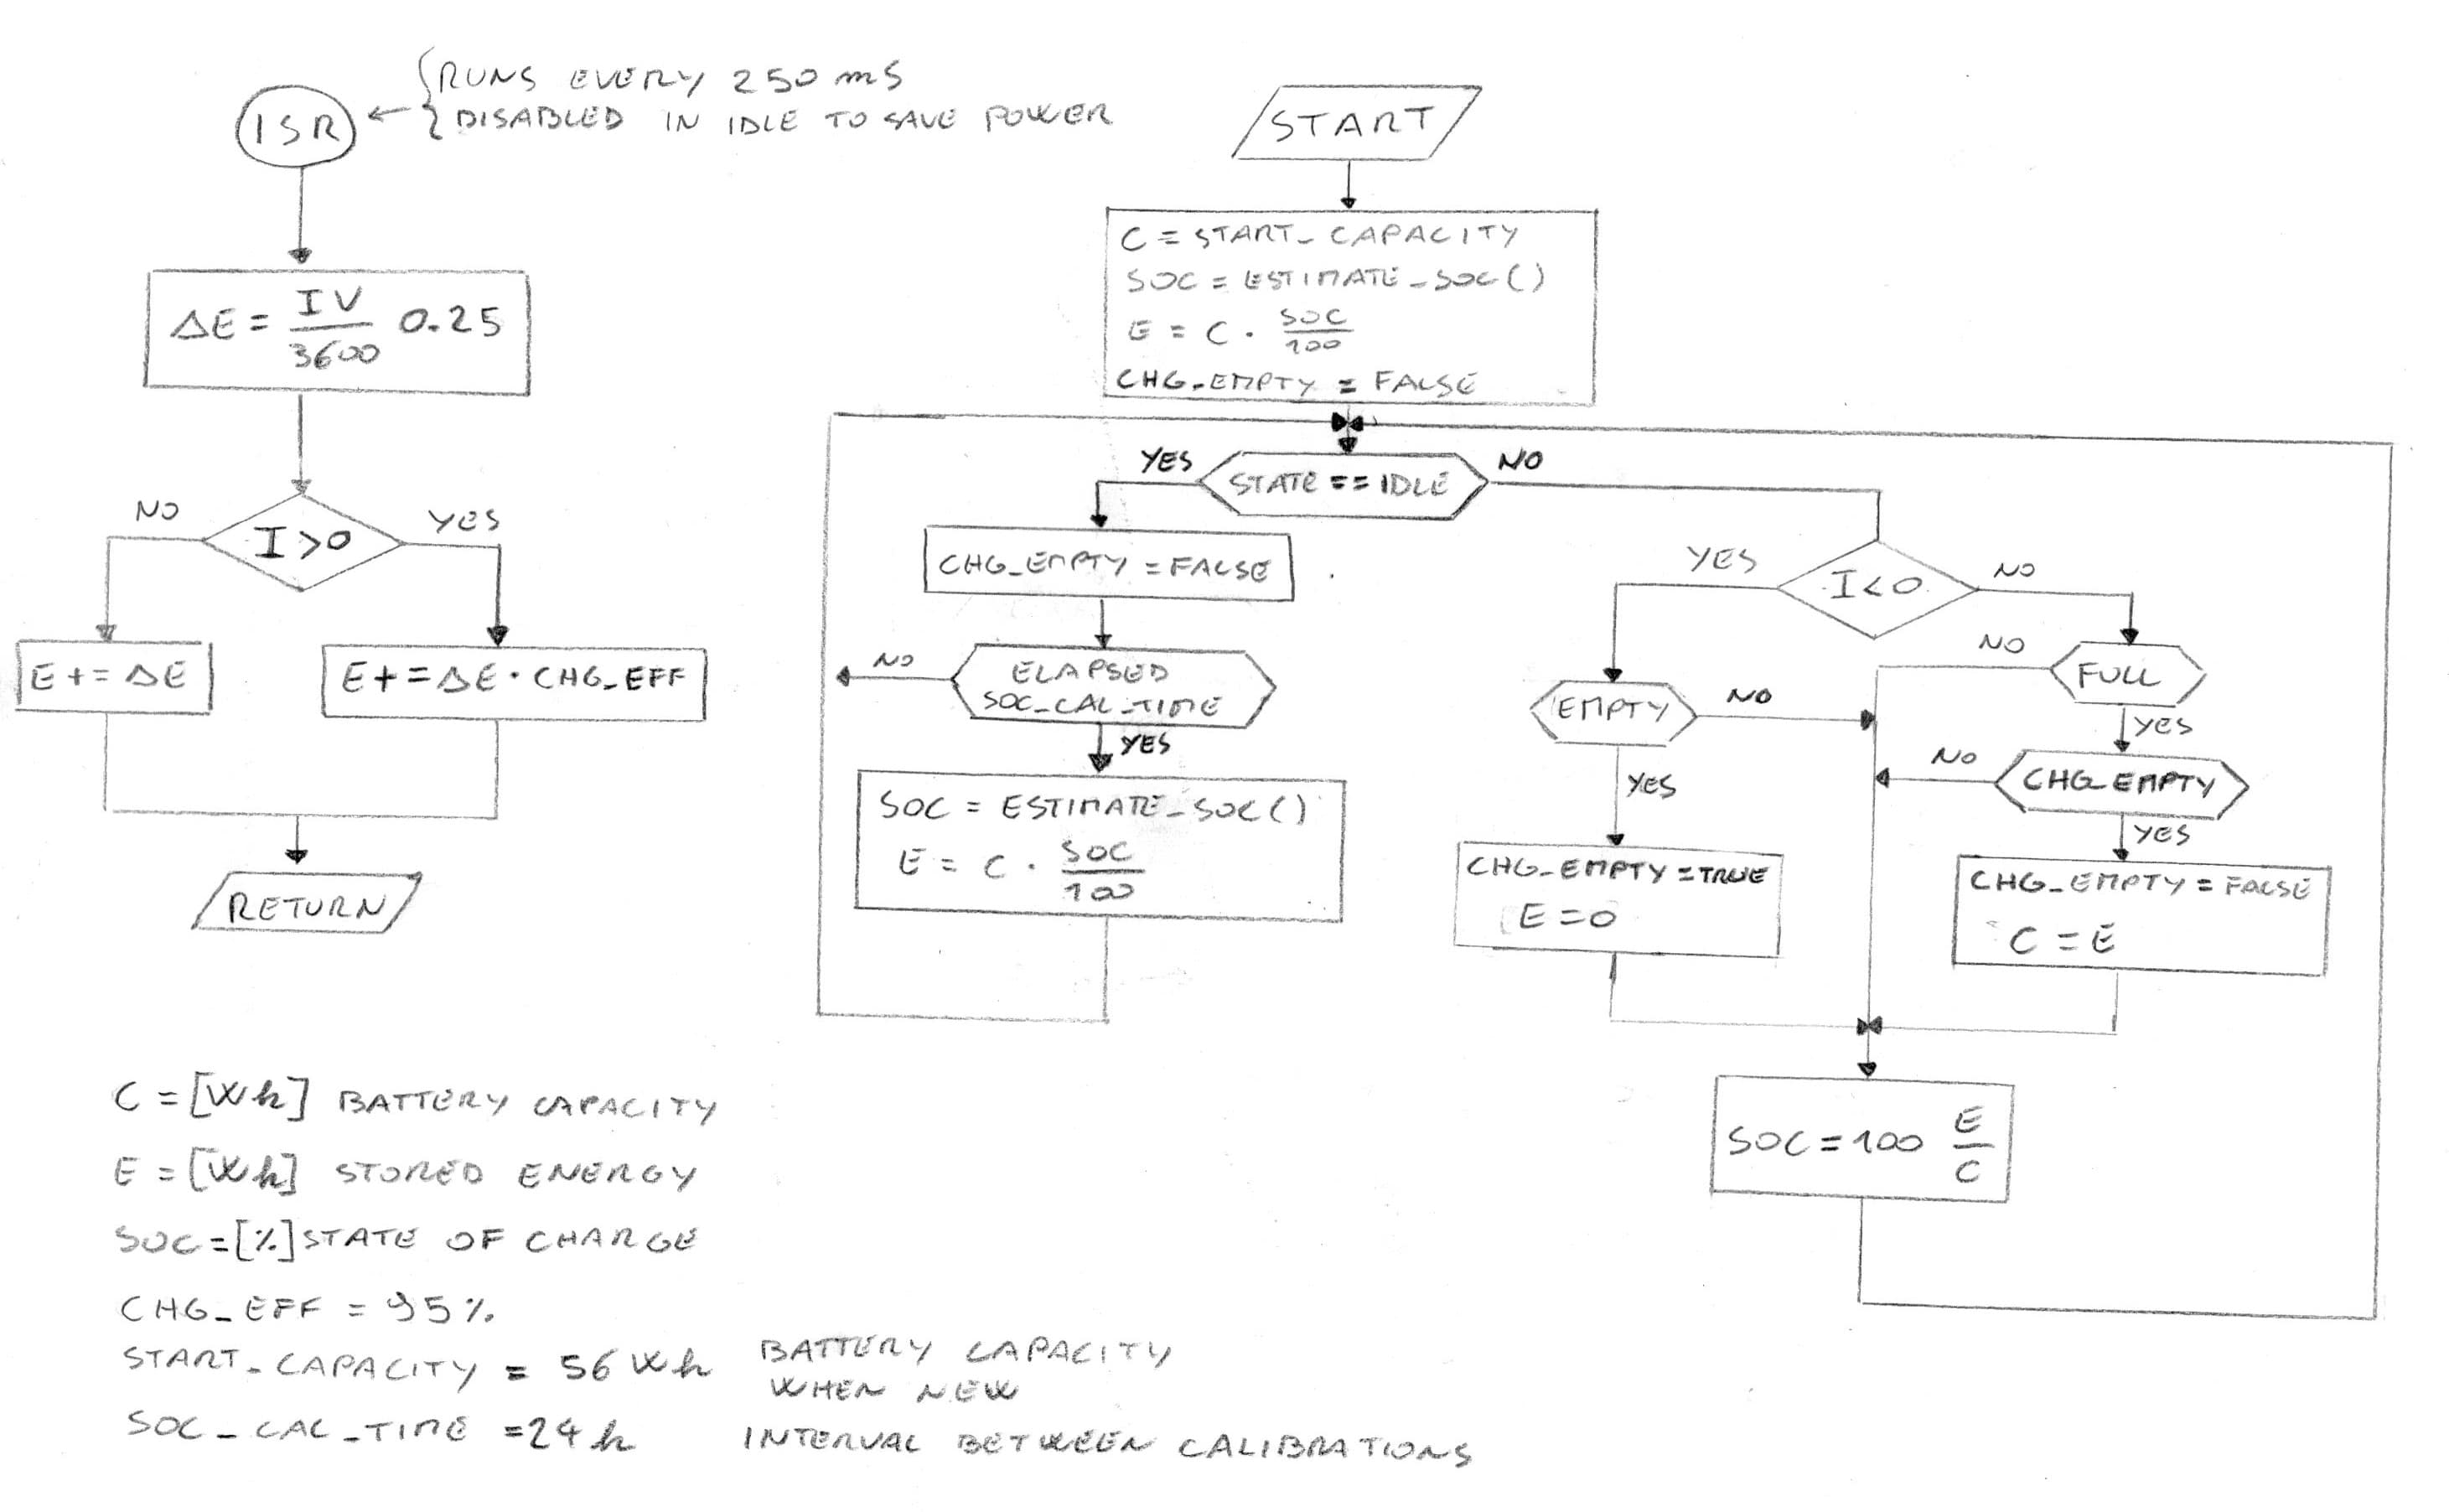 ISR
RUNS EVERY 250 mS
DISABLED IN IDLE TO SAVE POWER
ΔE = IV/3600 0.25
I>0
NO
YES
E += ΔE
E += ΔE · CHG_EFF
RETURN
START
C = START_CAPACITY
SOC = ESTIMATE_SOC()
E = C · SOC/100
CHG_EMPTY = FALSE
STATE == IDLE
YES
NO
CHG_EMPTY = FALSE
ELAPSED
SOC_CAL_TIME
NO
YES
SOC = ESTIMATE_SOC()
E = C · SOC/100
I<0
YES
NO
EMPTY
NO
YES
CHG_EMPTY = TRUE
E = 0
FULL
NO
YES
CHG_EMPTY
NO
YES
CHG_EMPTY = FALSE
C = E
SOC = 100 E/C
C = [Wh] BATTERY CAPACITY
E = [Wh] STORED ENERGY
SOC = [%] STATE OF CHARGE
CHG_EFF = 95%
START_CAPACITY = 56 Wh BATTERY CAPACITY
WHEN NEW
SOC_CAL_TIME = 24h INTERVAL BETWEEN CALIBRATIONS